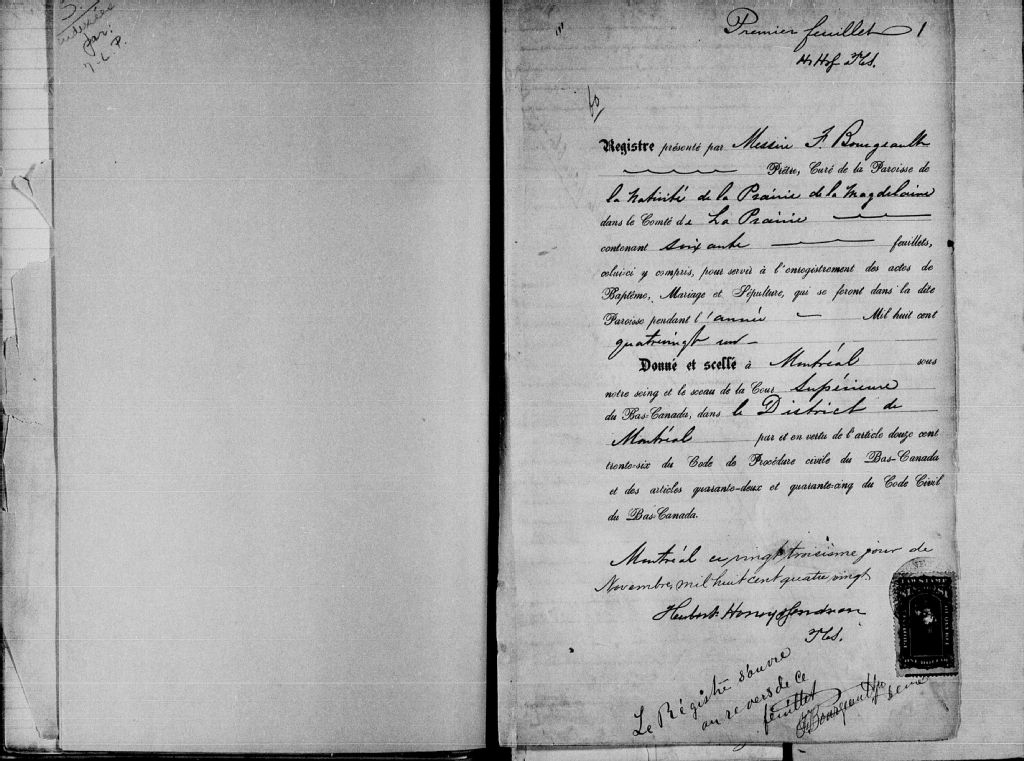 par:
Premier feuillet 1
Registre présenté par Messire F. Bourgeault
Prêtre, Curé de la Paroisse de
la Nativité de la Prairie de la Magdeleine
dans le Comté de La Prairie
contenant soixante feuillets,
celui-ci y compris, pour servir à l'enregistrement des actes de
Baptême, Mariage et Sépulture, qui se feront dans la dite
Paroisse pendant l'année Mil huit cent
quatrevingt un
Donné et scellé à Montréal sous
notre seing et le sceau de la Cour Supérieure
du Bas-Canada, dans le District de
Montréal par et en vertu de l'article douze cent
trente-six du Code de Procédure civile du Bas-Canada
et des articles quarante-deux et quarante-cinq du Code Civil
du Bas-Canada.
Montréal ce vingt troisième jour de
Novembre, mil huit cent quatre vingt
Honey Gendron
LAW STAMP
ONE DOLLAR
Le Régistre s'ouvre
au revers de ce
feuillet
F. Bourgeault